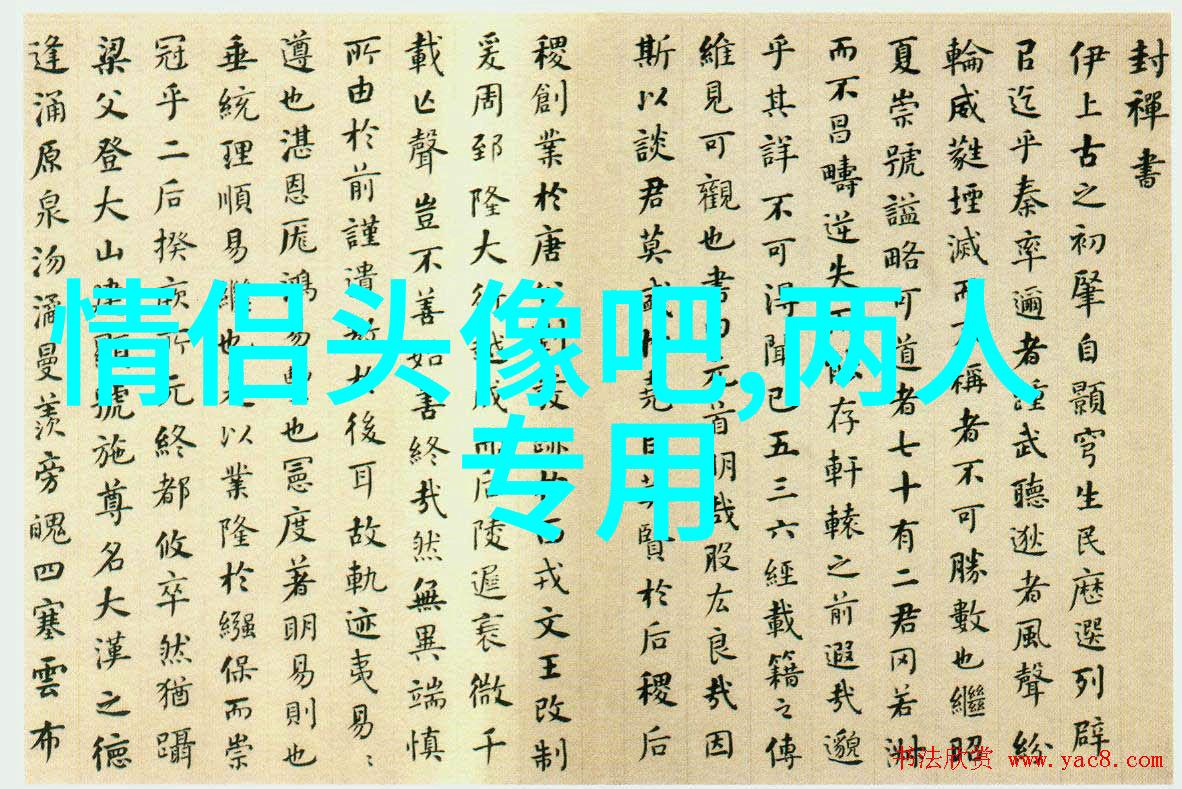 封禪書
伊上古之初肇自顥穹生民歷選列辟
㠯迄乎秦率邇者踵武聽逖者風聲紛
輪威蕤堙滅而不稱者不可勝數也繼昭
夏崇號謚略可道者七十有二君罔若淑
而不昌疇逆失而存軒轅之前遐哉邈
乎其詳不可得聞已五三六經載籍之傳
維見可觀也書曰元首明哉股厷良哉因
斯以談君莫盛於堯臣莫賢於后稷后
稷創業於唐公劉發跡於西戎文王改制
爰周郅隆大行越成而后陵遲衰微千
載亾聲豈不善始善終哉然無異端慎
所由於前謹遺教於後耳故軌迹夷易〻
遵也湛恩厖鴻易豐也憲度著明易則也
垂統理順易繼也是以業隆於繦保而崇
冠乎二后揆厥所元終都攸卒然猶躡
梁父登大山建顯號施尊名大漢之德
逢涌原泉沕潏曼羨旁魄四塞雲布
情侣头像吧,两人
专用
书法欣赏 www.yac8.com